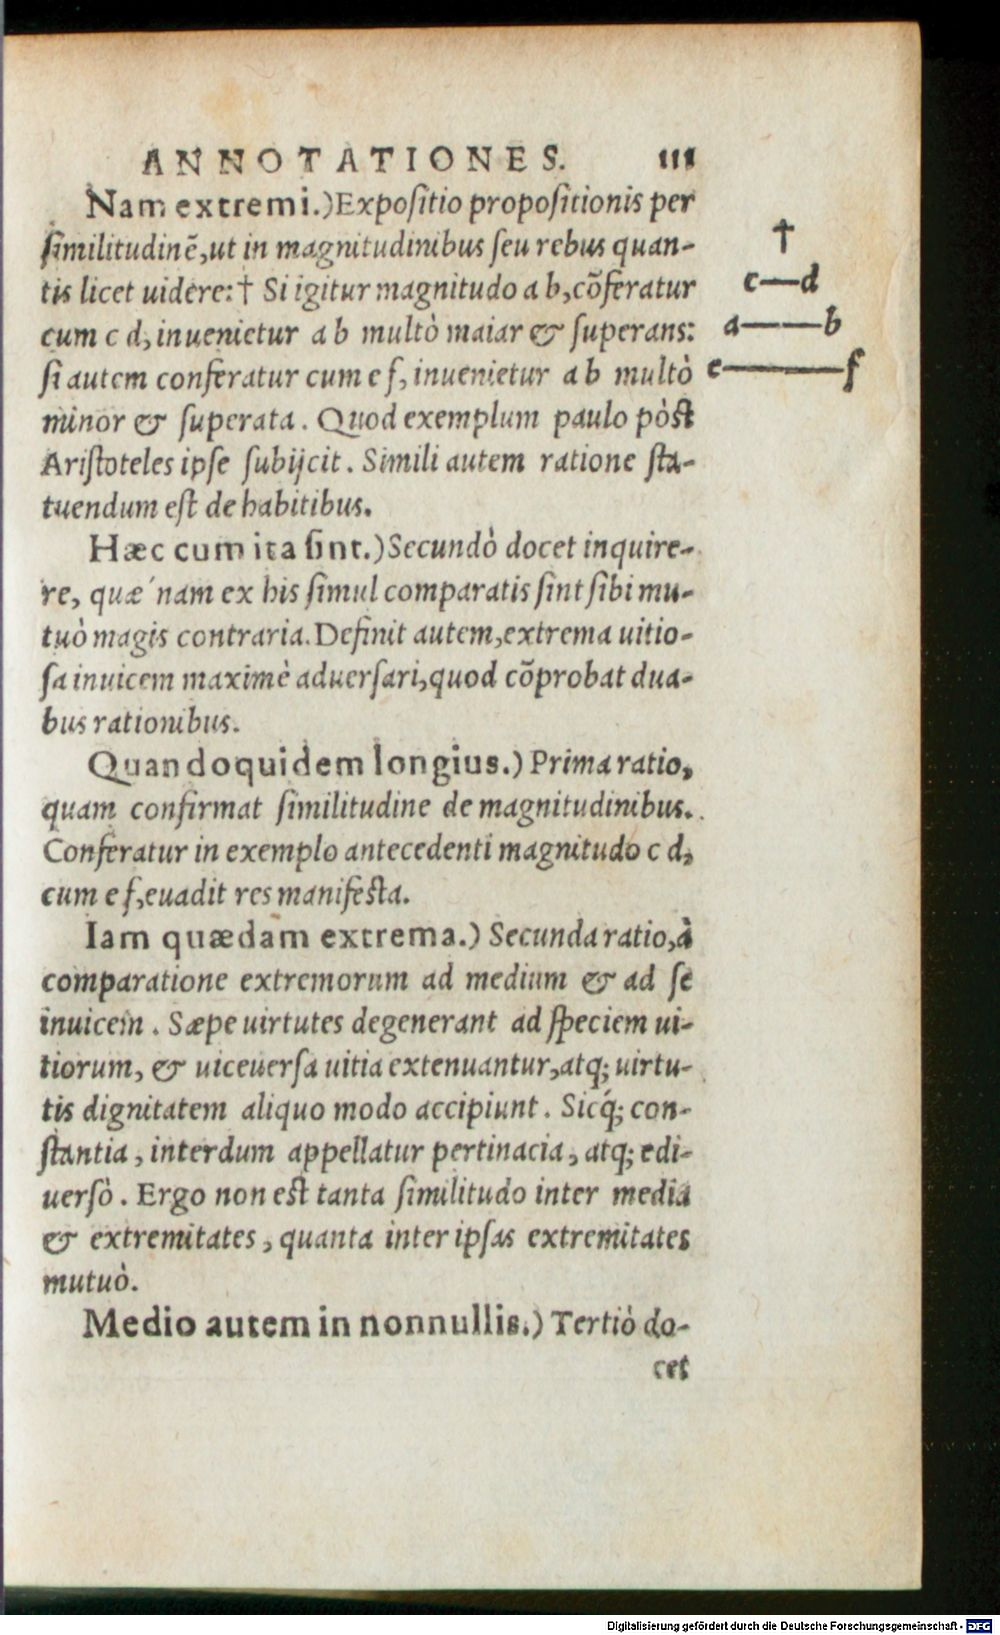 ANNOTATIONES. 111
Nam extremi.) Expositio propositionis per
similitudinē, ut in magnitudinibus seu rebus quan-
tis licet uidere: † Si igitur magnitudo a b, cōferatur
cum c d, inuenietur a b multò maiar & superans:
si autem conferatur cum e f, inuenietur a b multò
minor & superata. Quod exemplum paulo pòst
Aristoteles ipse subijcit. Simili autem ratione sta-
tuendum est de habitibus.
†
c—d
a——b
e———f
Hæc cum ita sint.) Secundò docet inquire-
re, quæ´nam ex his simul comparatis sint sibi mu-
tuò magis contraria. Definit autem, extrema uitio-
sa inuicem maximè aduersari, quod cōprobat dua-
bus rationibus.
Quandoquidem longius.) Prima ratio,
quam confirmat similitudine de magnitudinibus.
Conferatur in exemplo antecedenti magnitudo c d,
cum e f, euadit res manifesta.
Iam quædam extrema.) Secunda ratio, à
comparatione extremorum ad medium & ad se
inuicem. Sæpe uirtutes degenerant ad speciem ui-
tiorum, & uiceuersa uitia extenuantur, atq; uirtu-
tis dignitatem aliquo modo accipiunt. Sicq́; con-
stantia, interdum appellatur pertinacia, atq; e di-
uersò. Ergo non est tanta similitudo inter media
& extremitates, quanta inter ipsas extremitates
mutuò.
Medio autem in nonnullis.) Tertiò do-
cet
Digitalisierung gefördert durch die Deutsche Forschungsgemeinschaft - DFG